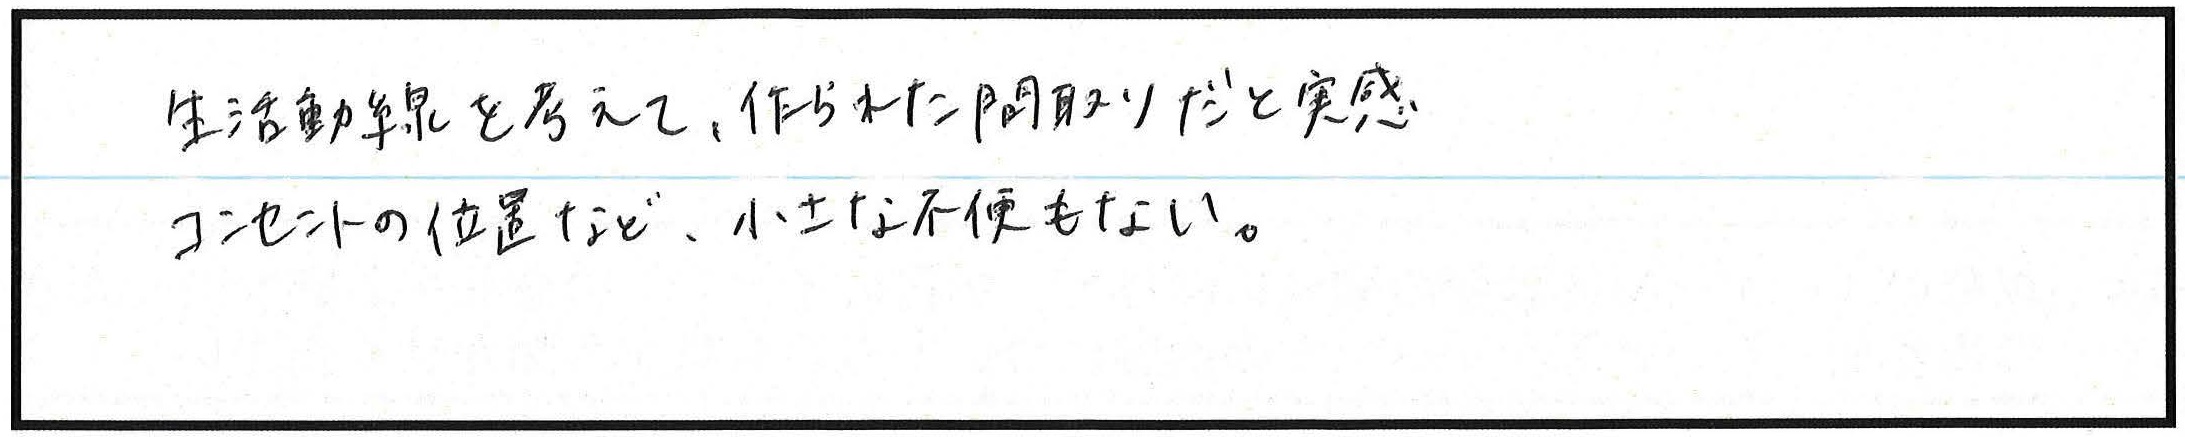 生活動線を考えて、作られた間取りだと実感
コンセントの位置など、小さな不便もない。